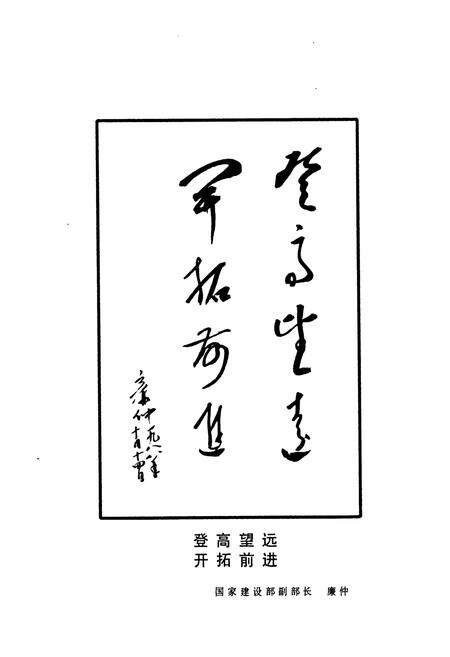 登高望遠
開拓前進
廉仲一九八八年
十月十四日
登高望远
开拓前进
国家建设部副部长 廉仲